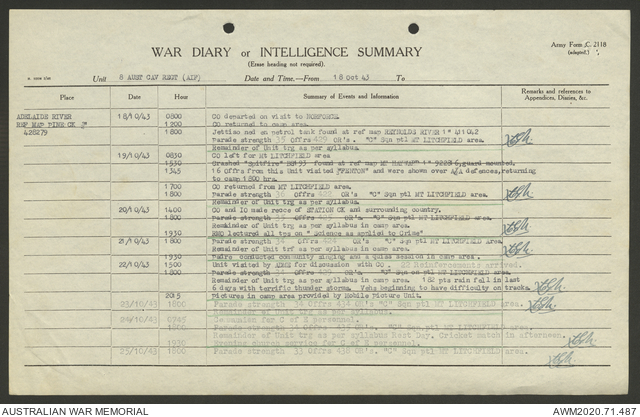 Army Form C. 2118
(Adapted)
WAR DIARY or INTELLIGENCE SUMMARY
(Erase heading not required).
Unit 8 AUST CAV REGT (AIF) Date and Time.—From 18 Oct 43 To
Place Date Hour Summary of Events and Information Remarks and references to Appendices, Diaries, &c.
ADELAIDE RIVER 18/10/43 0800 CO departed on visit to NORFORCE.
REF MAP PINE CK 1200 CO returned to camp area.
428279 1800 Jettisoned petrol tank found at ref map REYNOLDS RIVER 1" 411042
Parade strength 35 Offrs 429 OR's. "C" Sqn ptl MT LITCHFIELD area.
Remainder of Unit trg as per syllabus.
19/10/43 0830 CO left for MT LITCHFIELD area
1530 Crashed "Spitfire" found at ref map 1" 9228 6, guard mounted.
1345 16 Offrs from this Unit visited "FENTON" and were shown over A/A defences, returning
to camp 1800 hrs.
1700 CO returned from MT LITCHFIELD area.
1800 Parade strength 36 Offrs 428 OR's "C" Sqn ptl MT LITCHFIELD area.
Remainder of Unit trg as per syllabus.
20/10/43 1400 CO and IO made recce of STATION CK and surrounding country.
1800 Parade strength OR's "C" Sqn ptl MT LITCHFIELD area.
Remainder of Unit trg as per syllabus in camp area.
1930 RMO lectured all tps on "Science as applied to Crime"
21/10/43 1800 Parade strength 34 Offrs 424 OR's "C" Sqn ptl MT LITCHFIELD area.
Remainder of Unit trg as per syllabus in camp area.
1930 Padre conducted community singing and a quiet session in camp area.
22/10/43 1500 Unit visited by for discussion with CO. 22 Reinforcements arrived.
1800 Parade strength Offrs OR's. "C" Sqn on ptl MT LITCHFIELD area.
Remainder of Unit trg as per syllabus in camp area. 182 pts rain fell in last
6 days with terrific thunder storms. Vehs beginning to have difficulty on tracks.
2015 Pictures in camp area provided by Mobile Picture Unit.
23/10/43 1800 Parade strength Offrs 434 OR's "C" Sqn ptl MT LITCHFIELD area.
Remainder of Unit trg as per syllabus.
24/10/43 0745 Communion for C of E personnel.
1800 Parade strength Offrs OR's, "C" Sqn ptl MT LITCHFIELD area.
Remainder of Unit trg as per syllabus Rest Day, Cricket match in afternoon.
1930 Evening Church service for C of E personnel.
25/10/43 1800 Parade strength 33 Offrs 436 OR's. "C" Sqn ptl MT LITCHFIELD area.
AUSTRALIAN WAR MEMORIAL
AWM2020.71.487